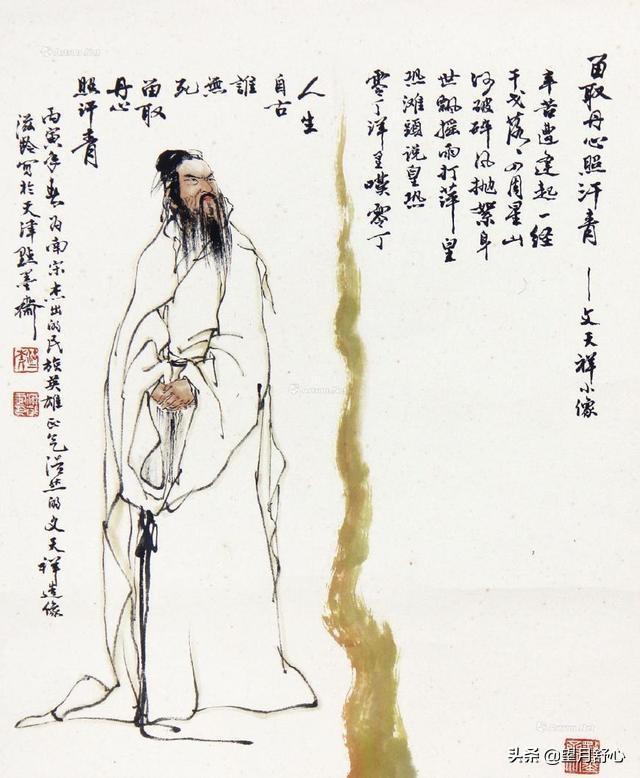 留取丹心照汗青——文天祥小像
辛苦遭逢起一经
干戈落々四周星山
河破碎风抛絮身
世飘摇雨打萍皇
恐滩頭说皇恐
零丁洋里嘆零丁
人生
自古
誰
無
死
留取
丹心
照汗青
丙寅年春为南宋杰出的民族英雄正气浩然的文天祥造像
滋龄写於天津點墨齋
头条 @望月舒心